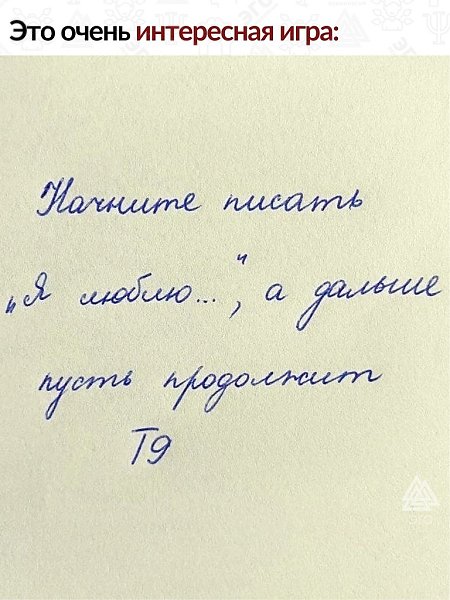 Это очень интересная игра:
Начните писать
„Я люблю...“, а дальше
пусть продолжит
Т9